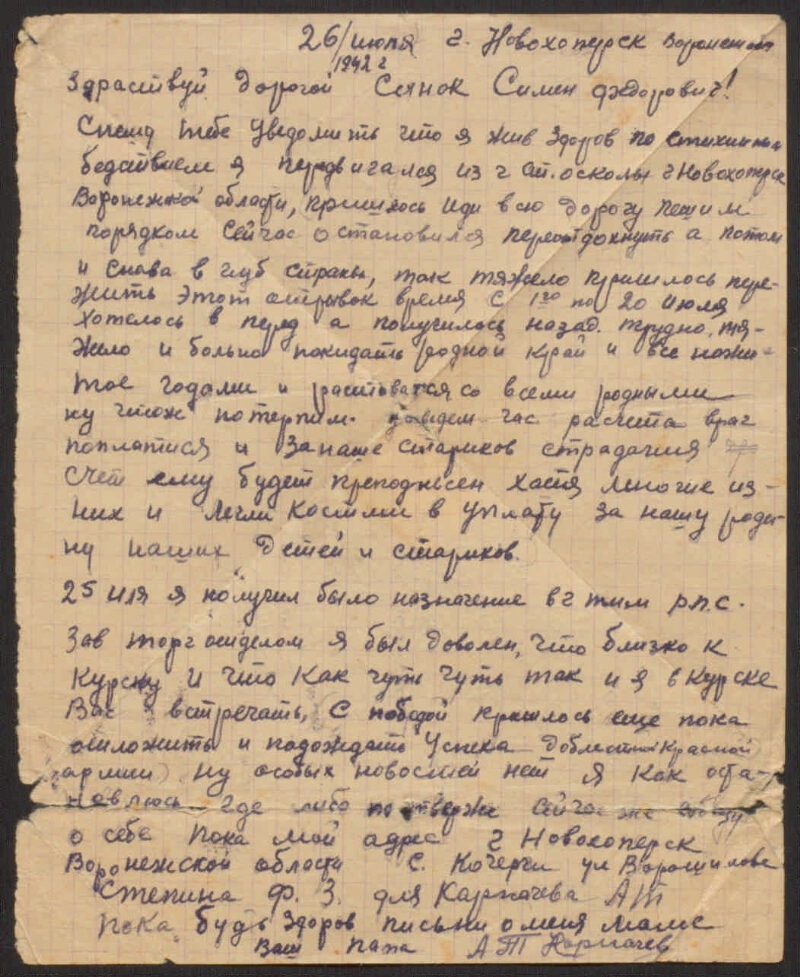 26/июля г. Новохоперск Воронежской
1942 г
Здраствуй дорогой Сенок Симен Федорович!
Спешу тебе уведомить что я жив здоров по стихийным
бедствием я передвигался из г Ст. осколы г Новохоперск
Воронежской области, пришлось иди всю дорогу пешим
порядком сейчас остановился переотдохнуть а потом
и снова в глуб страны, так тяжело пришлось пере-
жить этот отрывок время с 1го по 20 июля
хотелось в перед а получилось назад. трудно, тя-
жело и больно покидать родной край и все нажи-
тое годами и растоватся со всеми родными
ну чтож потерпим. час расчета враг
поплатися и за наше стариков страдания
счет ему будет преподнесен хатя многие из-
них и легли костьми в уплату за нашу роди-
ну наших детей и стариков.
25 иля я получил было назначение в г тим р.п.с.
Зав торг отделом я был доволен, что близко к
Курску и что как чуть чуть так и я в Курске
Вас встречать, с победой пришлось еще пока
отложить и подождать успеха доблестной Красной
армии) ну особых новостей нет я как оста-
новлюсь где либо по тверже сейчас же
о себе пока мой адрес г Новохоперск
Воронежской области с. Кочерги ул Ворошилова
Степина Ф. З. для Карпачева АТ
пока будь здоров письни о меня маме
Ваш папа АТ Карпачев